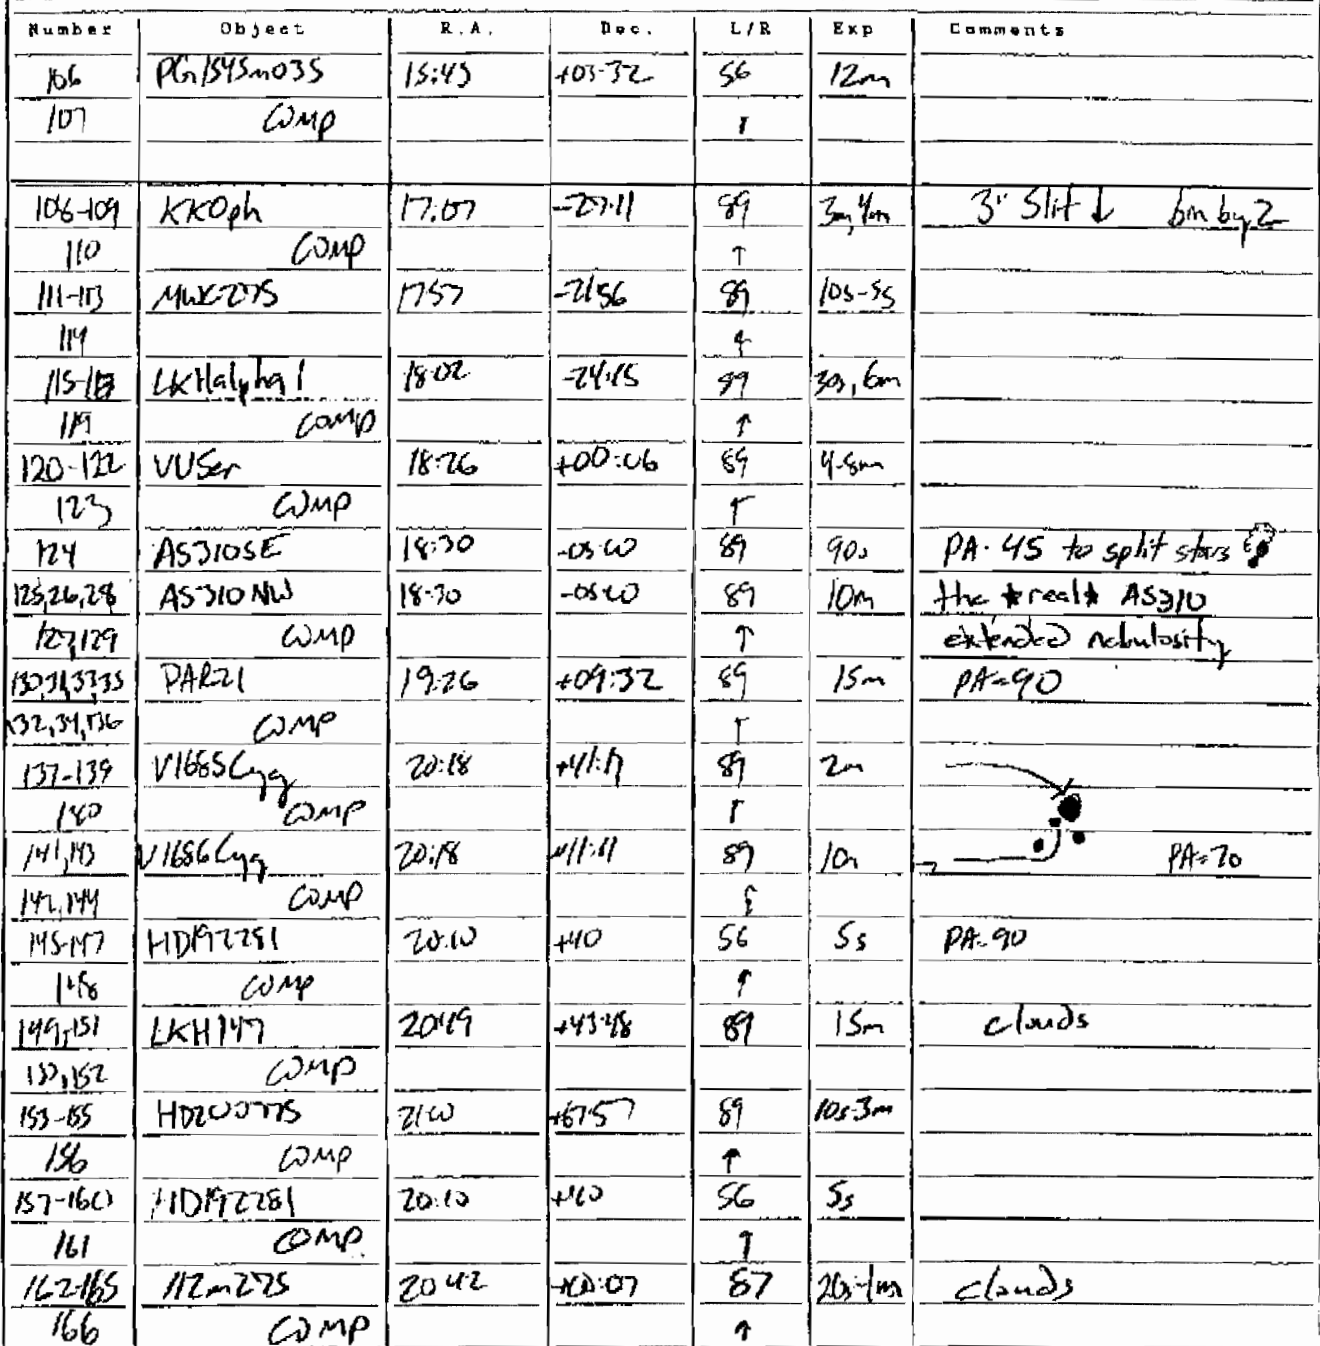 Number Object R.A. Dec. L/R Exp Comments
106 PG1545m035 15:45 +03:32 56 12m
107 COMP ↑
108-109 KKOph 17:07 -27:11 89 3m, 4m 3" Slit ↓ 6m by 2
110 COMP ↑
111-113 MWC275 1757 -2156 89 10s-5s
114 ↑
115-118 LKHalpha1 18:02 -24:15 89 30s, 6m
119 COMP ↑
120-122 VVSer 18:26 +00:06 89 4-8m
123 COMP ↑
124 AS310SE 18:30 -05:00 89 90s PA=45 to split stars
125,26,28 AS310NW 18:30 -05:00 89 10m the *real* AS310
127,129 COMP ↑ extended nebulosity
130,31,33,35 PAR21 19:26 +09:32 89 15m PA=90
132,34,136 COMP ↑
137-139 V1685Cyg 20:18 +41:11 89 2m
140 COMP ↑
141,143 V1686Cyg 20:18 +41:11 89 10m PA=70
142,144 COMP ↑
145-147 HD192281 20:10 +40 56 5s PA=90
148 COMP ↑
149,151 LKH147 20:49 +43:48 89 15m clouds
150,152 COMP
153-155 HD200775 21:00 +67:57 89 10s-3m
156 COMP ↑
157-160 HD192281 20:10 +40 56 5s
161 COMP ↑
162-165 112m275 20:42 +00:07 87 20s-1m clouds
166 COMP ↑